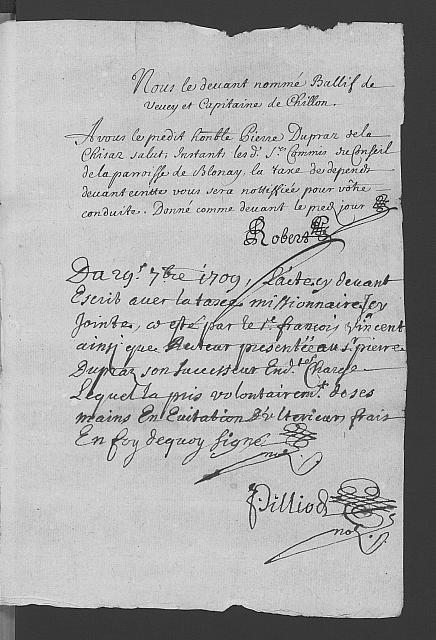 Nous le devant nommé Ballif de
Vevey et Capitaine de Chillon.
A vous le prédit honble Pierre Dupraz de la
Chisaz salut; Instant les d.^ts S.^rs Commis du Conseil
de la parroisse de Blonay, la taxe des depends
devant ecritte vous sera nottiffiée pour vôtre
conduite. Donné comme devant le pied jour
Robert
Du 29.^e 7bre 1709, L'acte cy devant
Escrit avec la taxe missionnaire Icy
Jointe, a esté par le S.^r françois Vincent
ainsi que Recteur presentée au S.^r pierre
Dupraz son Successeur En d.^te Charge
Lequel la pris volontairem.^t de ses
mains En Evitation d'Ulterieurs frais
En foy dequoy Signé
no.^re
f. Pilliod
no.^re